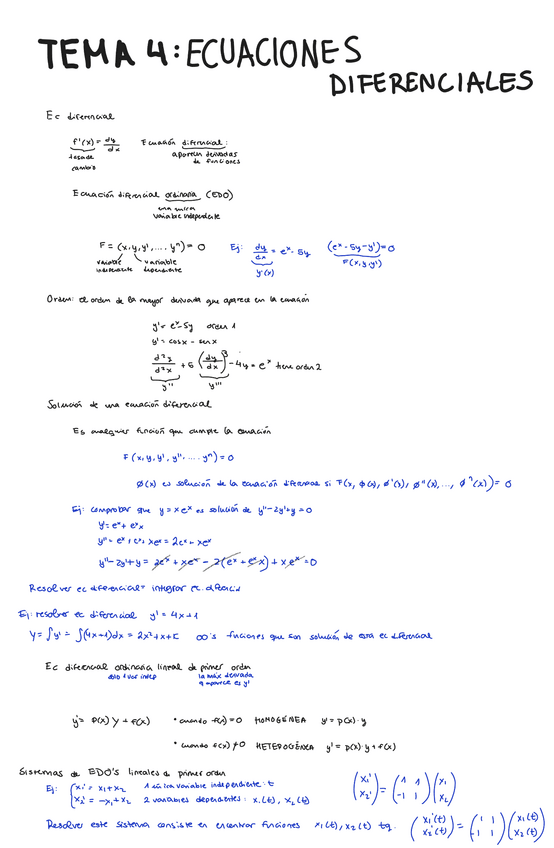 TEMA 4: ECUACIONES
DIFERENCIALES
Ec diferencial
f'(x) = dy/dx   Ecuación diferencial:
tasa de cambio   aparecen derivadas de funciones
Ecuación diferencial ordinaria (EDO)
una única variable independiente
F = (x, y, y', .... yⁿ) = 0   Ej: dy/dx = eˣ - 5y   (eˣ - 5y - y') = 0
variable independiente   variable dependiente   y'(x)   F(x, y, y')
Orden: el orden de la mayor derivada que aparece en la ecuación
y' = eˣ - 5y   orden 1
y' = cosx - senx
d²y/d²x + 5 (dy/dx)³ - 4y = eˣ tiene orden 2
y''   y'''
Solución de una ecuación diferencial
Es cualquier función que cumple la ecuación
F (x, y, y', y'', .... yⁿ) = 0
Ø(x) es solución de la ecuación diferencial si F(x, Ø(x), Ø'(x), Ø''(x), ..., Øⁿ(x)) = 0
Ej: comprobar que y = x eˣ es solución de y'' - 2y' + y = 0
y' = eˣ + eˣx
y'' = eˣ + eˣ + xeˣ = 2eˣ + xeˣ
y'' - 2y' + y = 2eˣ + xeˣ - 2(eˣ + eˣx) + xeˣ = 0
Resolver ec diferencial = integrar ec. diferencial
Ej: resolver ec diferencial y' = 4x + 1
Y = ∫y' = ∫(4x+1)dx = 2x² + x + C   ∞'s funciones que son solución de esta ec diferencial
Ec diferencial ordinaria lineal de primer orden
solo 1 var indep   la máx derivada q aparece es y'
y' = p(x) y + f(x)   * cuando f(x) = 0 HOMOGÉNEA y' = p(x)·y
* cuando f(x) ≠ 0 HETEROGÉNEA y' = p(x)·y + f(x)
Sistemas de EDO's lineales de primer orden
Ej: { x₁' = x₁ + x₂   1 única variable independiente: t   (x₁' x₂') = (1 1 -1 1) (x₁ x₂)
x₂' = -x₁ + x₂   2 variables dependientes: x₁(t), x₂(t)
Resolver este sistema consiste en encontrar funciones x₁(t), x₂(t) tq. (x₁'(t) x₂'(t)) = (1 1 -1 1) (x₁(t) x₂(t))